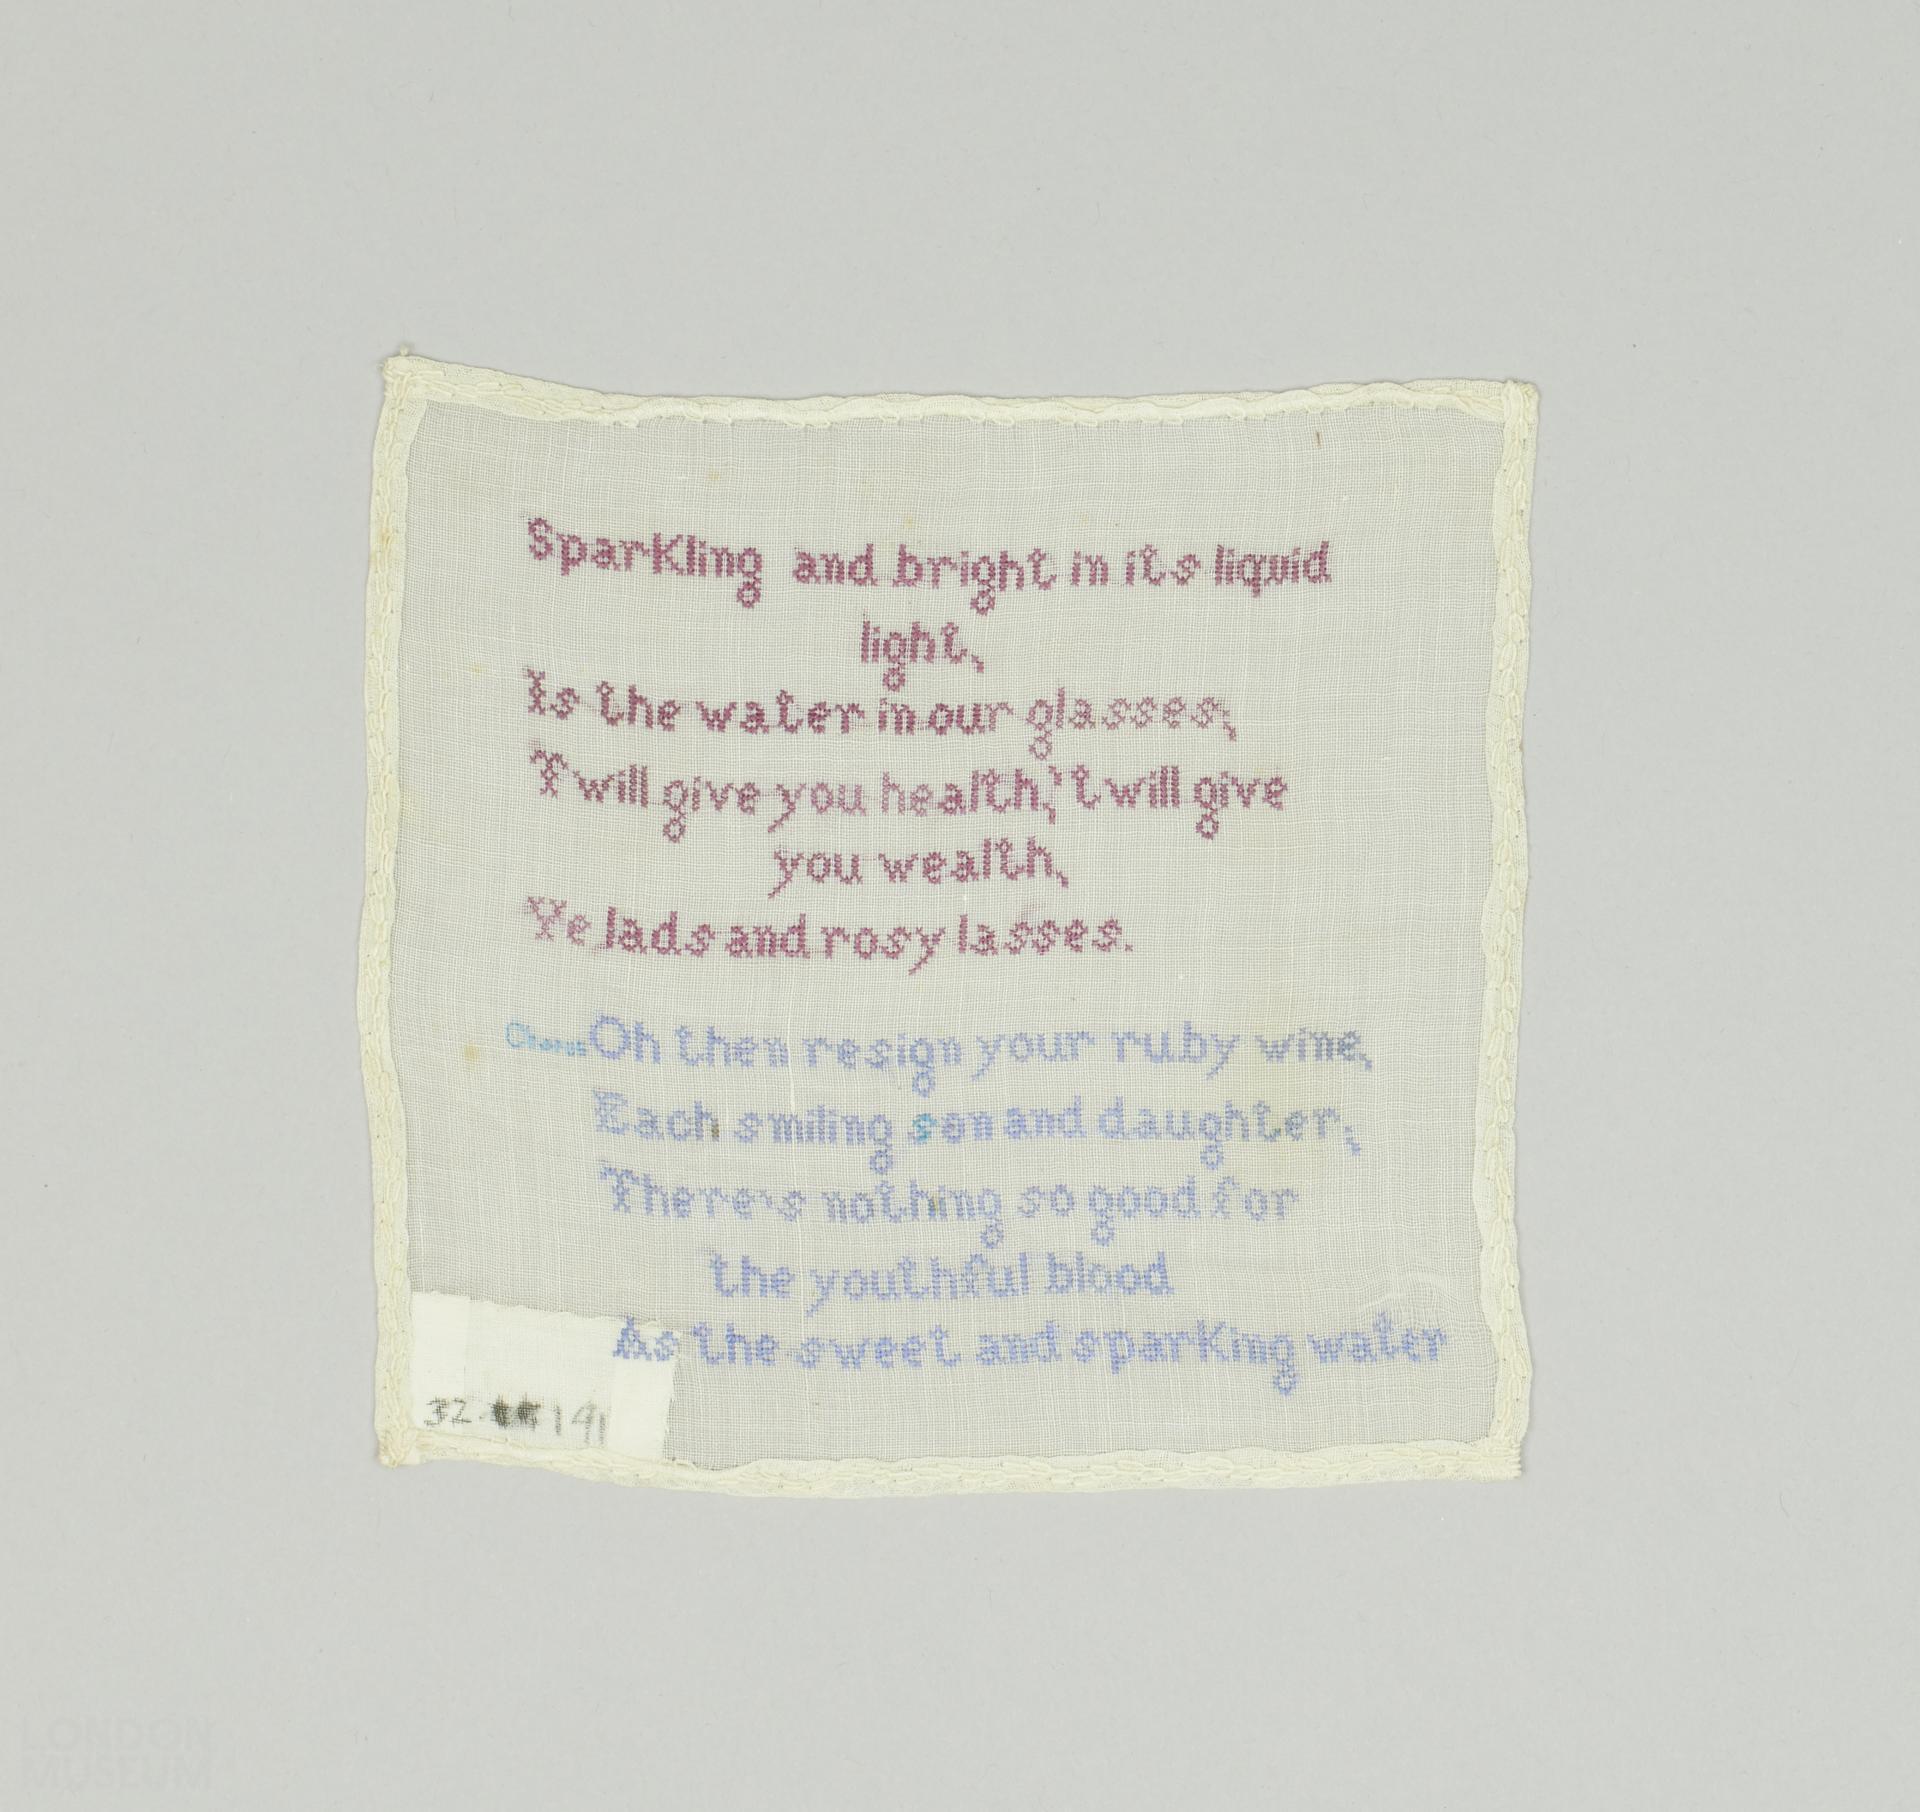 Sparkling and bright in its liquid
light,
Is the water in our glasses,
T will give you health, 't will give
you wealth,
Ye lads and rosy lasses.
Chorus Oh then resign your ruby wine,
Each smiling son and daughter,
There's nothing so good for
the youthful blood
As the sweet and sparking water
32 191
LONDON
MUSEUM